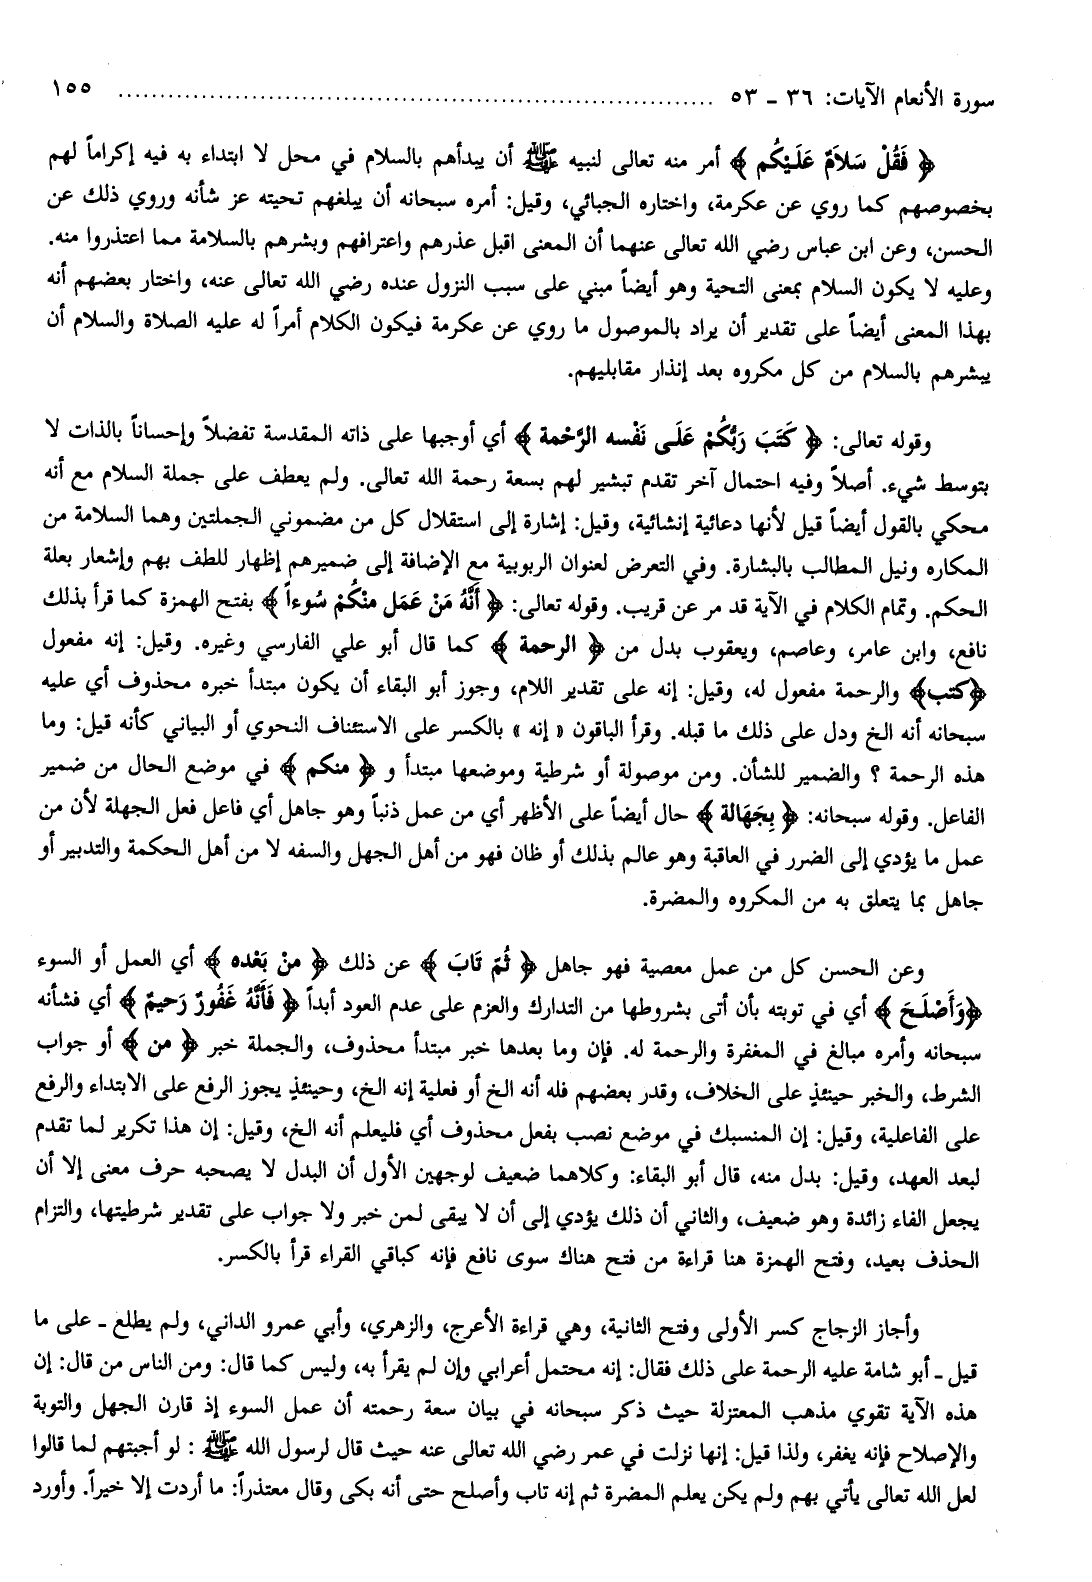 سورة الأنعام الآيات: ٣٦ ـ ٥٣ ........................................................................ ١٥٥
﴿ فَقُلْ سَلاَمٌ عَلَيْكُم ﴾ أمر منه تعالى لنبيه ﷺ أن يبدأهم بالسلام في محل لا ابتداء به فيه إكراماً لهم
بخصوصهم كما روي عن عكرمة، واختاره الجبائي، وقيل: أمره سبحانه أن يبلغهم تحيته عز شأنه وروي ذلك عن
الحسن، وعن ابن عباس رضي الله تعالى عنهما أن المعنى اقبل عذرهم واعترافهم وبشرهم بالسلامة مما اعتذروا منه.
وعليه لا يكون السلام بمعنى التحية وهو أيضاً مبني على سبب النزول عنده رضي الله تعالى عنه، واختار بعضهم أنه
بهذا المعنى أيضاً على تقدير أن يراد بالموصول ما روي عن عكرمة فيكون الكلام أمراً له عليه الصلاة والسلام أن
يبشرهم بالسلام من كل مكروه بعد إنذار مقابليهم.
وقوله تعالى: ﴿ كَتَبَ رَبُّكُمْ عَلَى نَفْسه الرَّحْمة ﴾ أي أوجبها على ذاته المقدسة تفضلاً وإحساناً بالذات لا
بتوسط شيء. أصلاً وفيه احتمال آخر تقدم تبشير لهم بسعة رحمة الله تعالى. ولم يعطف على جملة السلام مع أنه
محكي بالقول أيضاً قيل لأنها دعائية إنشائية، وقيل: إشارة إلى استقلال كل من مضموني الجملتين وهما السلامة من
المكاره ونيل المطالب بالبشارة. وفي التعرض لعنوان الربوبية مع الإضافة إلى ضميرهم إظهار للطف بهم وإشعار بعلة
الحكم. وتمام الكلام في الآية قد مر عن قريب. وقوله تعالى: ﴿ أَنَّهُ مَنْ عَمَل منْكُمْ سُوءاً ﴾ بفتح الهمزة كما قرأ بذلك
نافع، وابن عامر، وعاصم، ويعقوب بدل من ﴿ الرحمة ﴾ كما قال أبو علي الفارسي وغيره. وقيل: إنه مفعول
﴿كتب﴾ والرحمة مفعول له، وقيل: إنه على تقدير اللام، وجوز أبو البقاء أن يكون مبتدأ خبره محذوف أي عليه
سبحانه أنه الخ ودل على ذلك ما قبله. وقرأ الباقون « إنه » بالكسر على الاستئناف النحوي أو البياني كأنه قيل: وما
هذه الرحمة ؟ والضمير للشأن. ومن موصولة أو شرطية وموضعها مبتدأ و ﴿ منكم ﴾ في موضع الحال من ضمير
الفاعل. وقوله سبحانه: ﴿ بِجَهَالة ﴾ حال أيضاً على الأظهر أي من عمل ذنباً وهو جاهل أي فاعل فعل الجهلة لأن من
عمل ما يؤدي إلى الضرر في العاقبة وهو عالم بذلك أو ظان فهو من أهل الجهل والسفه لا من أهل الحكمة والتدبير أو
جاهل بما يتعلق به من المكروه والمضرة.
وعن الحسن كل من عمل معصية فهو جاهل ﴿ ثُمّ تَابَ ﴾ عن ذلك ﴿ منْ بَعْده ﴾ أي العمل أو السوء
﴿وَأَصْلَحَ ﴾ أي في توبته بأن أتى بشروطها من التدارك والعزم على عدم العود أبداً ﴿ فَأَنَّهُ غَفُورٌ رَحيمٌ ﴾ أي فشأنه
سبحانه وأمره مبالغ في المغفرة والرحمة له. فإن وما بعدها خبر مبتدأ محذوف، والجملة خبر ﴿ من ﴾ أو جواب
الشرط، والخبر حينئذٍ على الخلاف، وقدر بعضهم فله أنه الخ أو فعلية إنه الخ، وحينئذٍ يجوز الرفع على الابتداء والرفع
على الفاعلية، وقيل: إن المنسبك في موضع نصب بفعل محذوف أي فليعلم أنه الخ، وقيل: إن هذا تكرير لما تقدم
لبعد العهد، وقيل: بدل منه، قال أبو البقاء: وكلاهما ضعيف لوجهين الأول أن البدل لا يصحبه حرف معنى إلا أن
يجعل الفاء زائدة وهو ضعيف، والثاني أن ذلك يؤدي إلى أن لا يبقى لمن خبر ولا جواب على تقدير شرطيتها، والتزام
الحذف بعيد، وفتح الهمزة هنا قراءة من فتح هناك سوى نافع فإنه كباقي القراء قرأ بالكسر.
وأجاز الزجاج كسر الأولى وفتح الثانية، وهي قراءة الأعرج، والزهري، وأبي عمرو الداني، ولم يطلع ـ على ما
قيل ـ أبو شامة عليه الرحمة على ذلك فقال: إنه محتمل أعرابي وإن لم يقرأ به، وليس كما قال: ومن الناس من قال: إن
هذه الآية تقوي مذهب المعتزلة حيث ذكر سبحانه في بيان سعة رحمته أن عمل السوء إذ قارن الجهل والتوبة
والإصلاح فإنه يغفر، ولذا قيل: إنها نزلت في عمر رضي الله تعالى عنه حيث قال لرسول الله ﷺ : لو أجبتهم لما قالوا
لعل الله تعالى يأتي بهم ولم يكن يعلم المضرة ثم إنه تاب وأصلح حتى أنه بكى وقال معتذراً: ما أردت إلا خيراً. وأورد